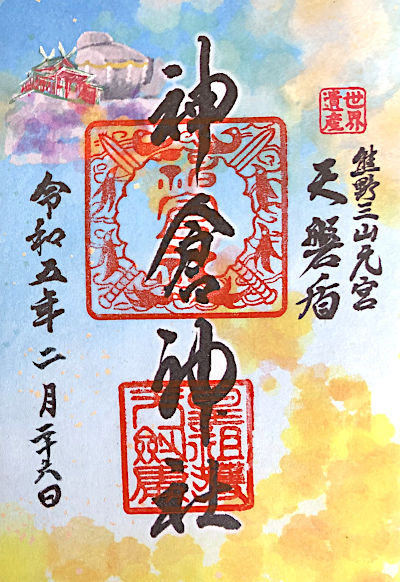 世界
遺産
熊野三山元宮
天磐盾
神倉神社
令和五年二月二十六日